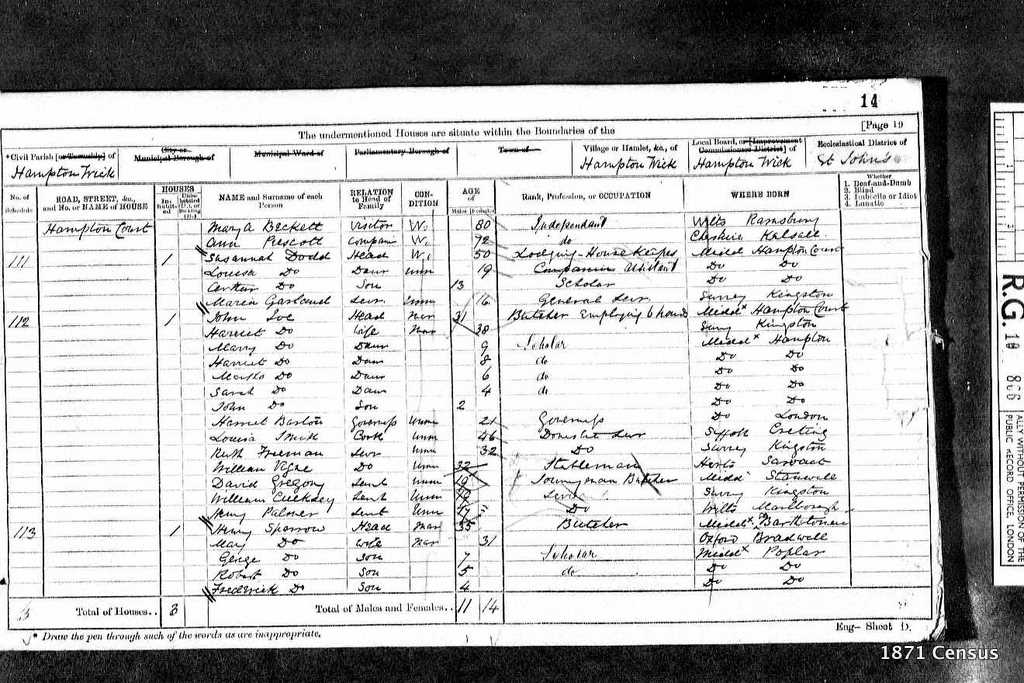 14
The undermentioned Houses are situate within the Boundaries of the
[Page 19
*Civil Parish [or Township] of
City or Municipal Borough of
Municipal Ward of
Parliamentary Borough of
Town of
Village or Hamlet, &c., of
Local Board, or [Improvement Commissioners District] of
Ecclesiastical District of
Hampton Wick
Hampton Wick
Hampton Wick
St John's
No. of Schedule
ROAD, STREET, &c., and No. or NAME of HOUSE
HOUSES
NAME and Surname of each Person
RELATION to Head of Family
CON-DITION
AGE of
Rank, Profession, or OCCUPATION
WHERE BORN
Whether
1. Deaf-and-Dumb
2. Blind
3. Imbecile or Idiot
4. Lunatic
Hampton Court Mary A Beckett Visitor W. 80 Independant Wilts Ramsbury
Ann Prescott W. 72 do Cheshire Kelsall
111 1 Susannah Dodd Head W. 50 Lodging-House Keeper Middx Hampton Court
Louisa Do Daur Unm 19 Companion Assistant Do Do
Arthur Do Son 13 Scholar Do Do
Maria Serv. Unm 16 General Serv Surrey Kingston
112 1 John Head Mar 31 Butcher Employing 6 hands Middx Hampton Court
Harriet Do Wife Mar 38 Surry Kingston
Do Daur 9 Scholar Middx Hampton
Harriet Do Daur 8 do Do Do
Martha Do Daur 6 do Do Do
Sarah Do Daur 4 do Do Do
John Do Son 2 Do Do
Harriet Barton Governess Unm 21 Governess Do London
Louisa Smith Cook Unm 46 Domestic Serv Suffolk Creting
Ruth Freeman Serv Unm 32 Do Surrey Kingston
William Do Unm 32 Stableman Herts
David Gregory Servt Unm 19 Journeyman Butcher Midd Stanwell
William Cuckney Servt Unm Surry Kingston
Henry Palmer Servt Unm 17 Do Wilts Marlborough
113 1 Henry Sparrow Head Mar 35 Butcher Middx
Mary Do Wife Mar 31 Oxford Bradwell
George Do Son 7 Scholar Middx Poplar
Robert Do Son 5 do Do Do
Frederick Do Son 4 Do Do
3 Total of Houses.. 3 Total of Males and Females.. 11 14
* Draw the pen through such of the words as are inappropriate.
Eng- Sheet D.
R.G. 10 866
ALLY WITHOUT PERMISSION OF THE
PUBLIC RECORD OFFICE, LONDON
1871 Census